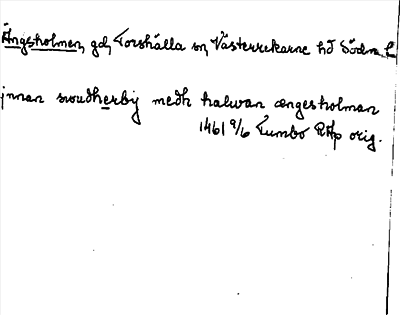 Ängsholmen, gd, Torshälla sn, Västerrekarne hd Södm. L
jnnan swudherby medh halwan ængesholman
1461 9/6 Tumbo RAp orig.